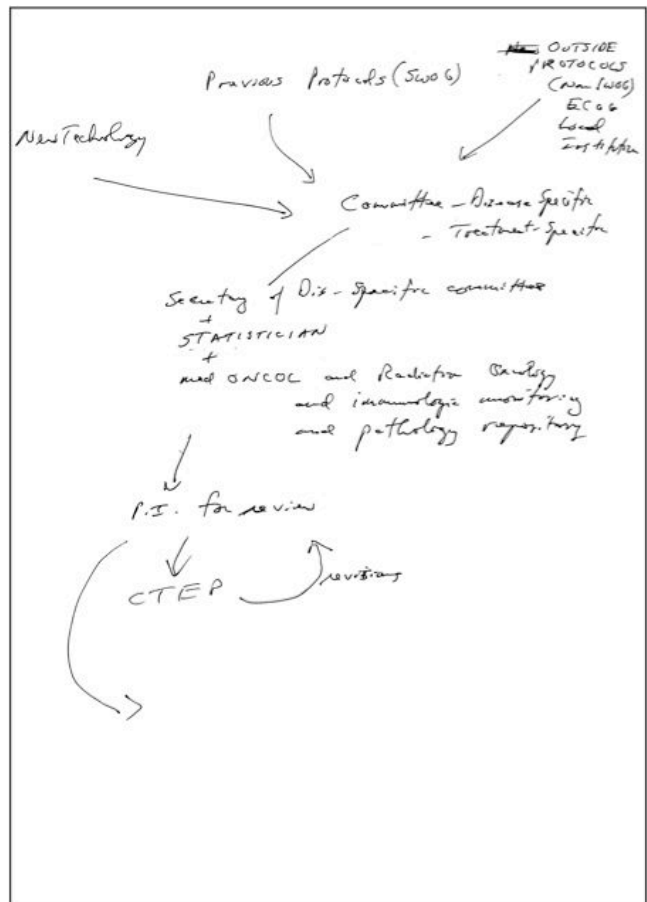 OUTSIDE
PROTOCOLS
(Non SWOG)
ECOG
Local
Institution
Previous Protocols (SWOG)
New Technology
Committee - Disease Specific
- Treatment-Specific
Secretary of Dis-Specific committee
+
STATISTICIAN
+
med ONCOL and Radiation Oncology
and immunologic monitoring
and pathology repository
P.I. for review
CTEP
revisions